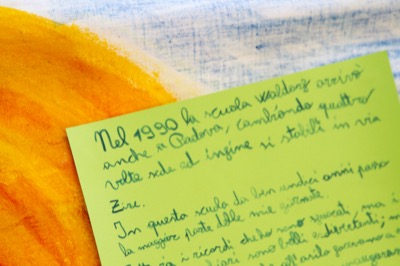 Nel 1990 la scuola Waldorf arrivò
anche a Padova, cambiando quattro
volte sede ed infine si stabilì in via
Zize.
In questa scuola da ben undici anni passo
la maggior parte delle mie giornate.
i ricordi che ho sono ma i
sono belli e